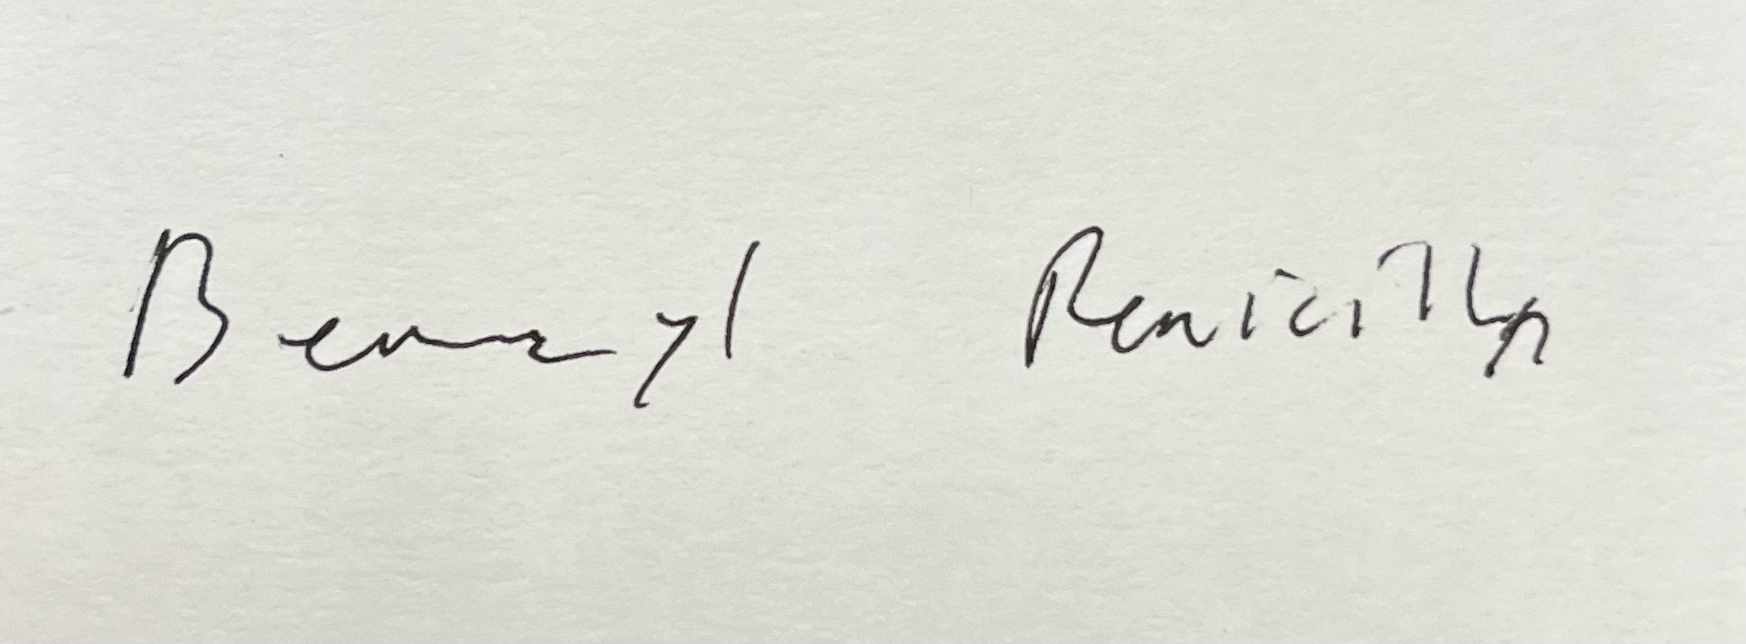 Benzyl Penicillin